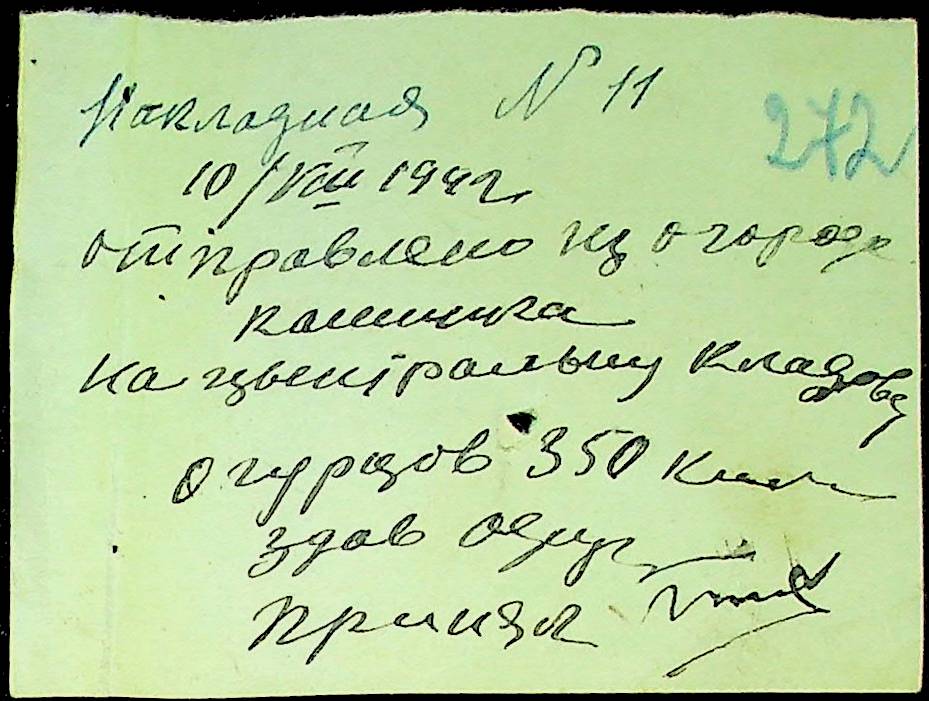 Накладная N 11
272
10/VIII 1942
отправлено из огорода
на центральну кладову
огурцов 350 кил
здав
принял